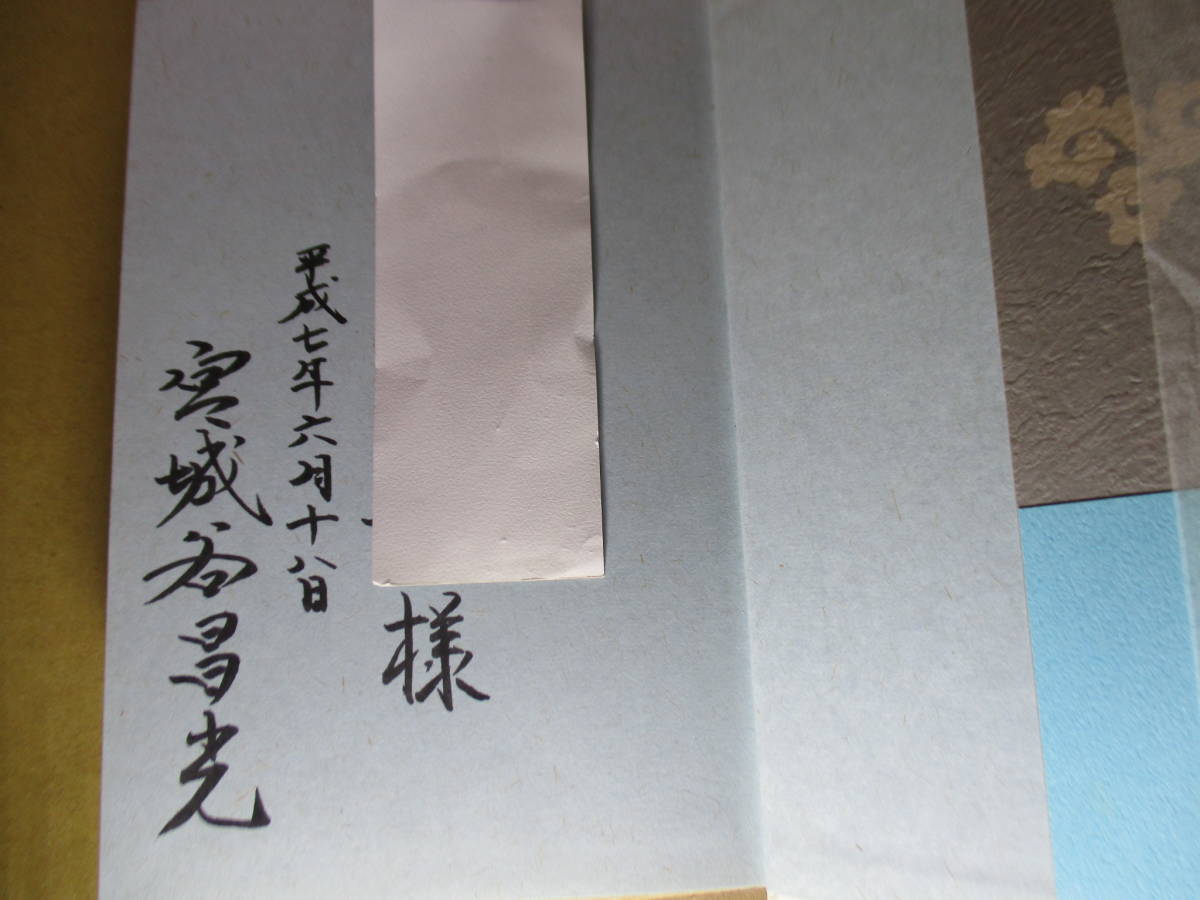 様
平成七年六月十八日
宮城谷昌光